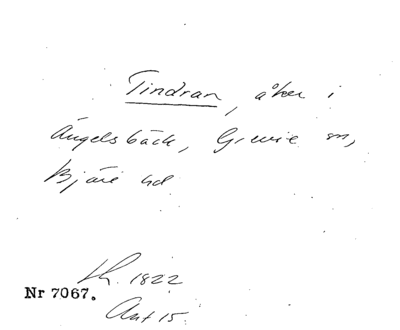 Tindran, åker i
Ängelsbäck, Grevie sn,
Bjäre hd
Lh. 1822
Nr 7067.
Akt 15.